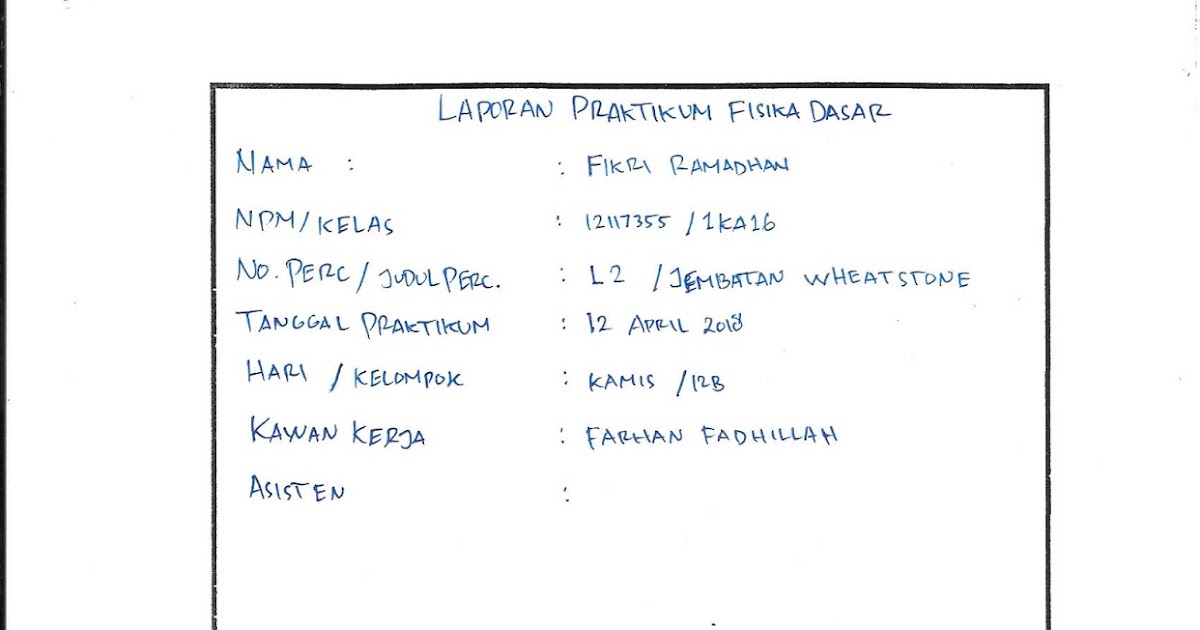 LAPORAN PRAKTIKUM FISIKA DASAR
NAMA : : FIKRI RAMADHAN
NPM/KELAS : 12117355 / 1KA16
NO. PERC / JUDUL PERC. : L2 / JEMBATAN WHEATSTONE
TANGGAL PRAKTIKUM : 12 APRIL 2018
HARI / KELOMPOK : KAMIS / 12B
KAWAN KERJA : FARHAN FADHILLAH
ASISTEN :